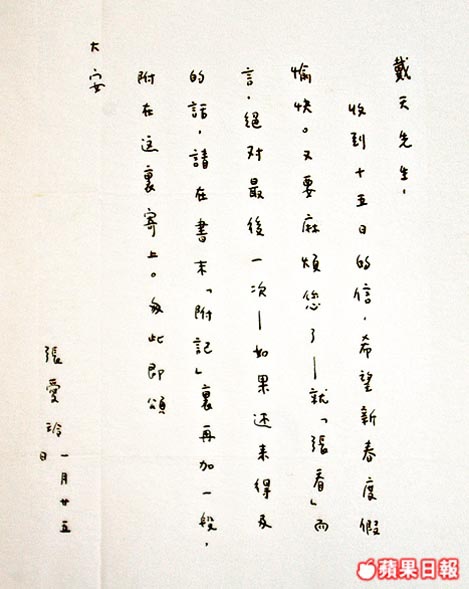 戴天先生,
收到十五日的信,希望新春度假
愉快。又要麻煩您了—就「張看」而
言,絕对最後一次—如果还来得及
的話,請在書末「附記」裏再加一段,
附在这裏寄上。匆此即頌
大安
張愛玲 一月廿五
日
蘋果日報